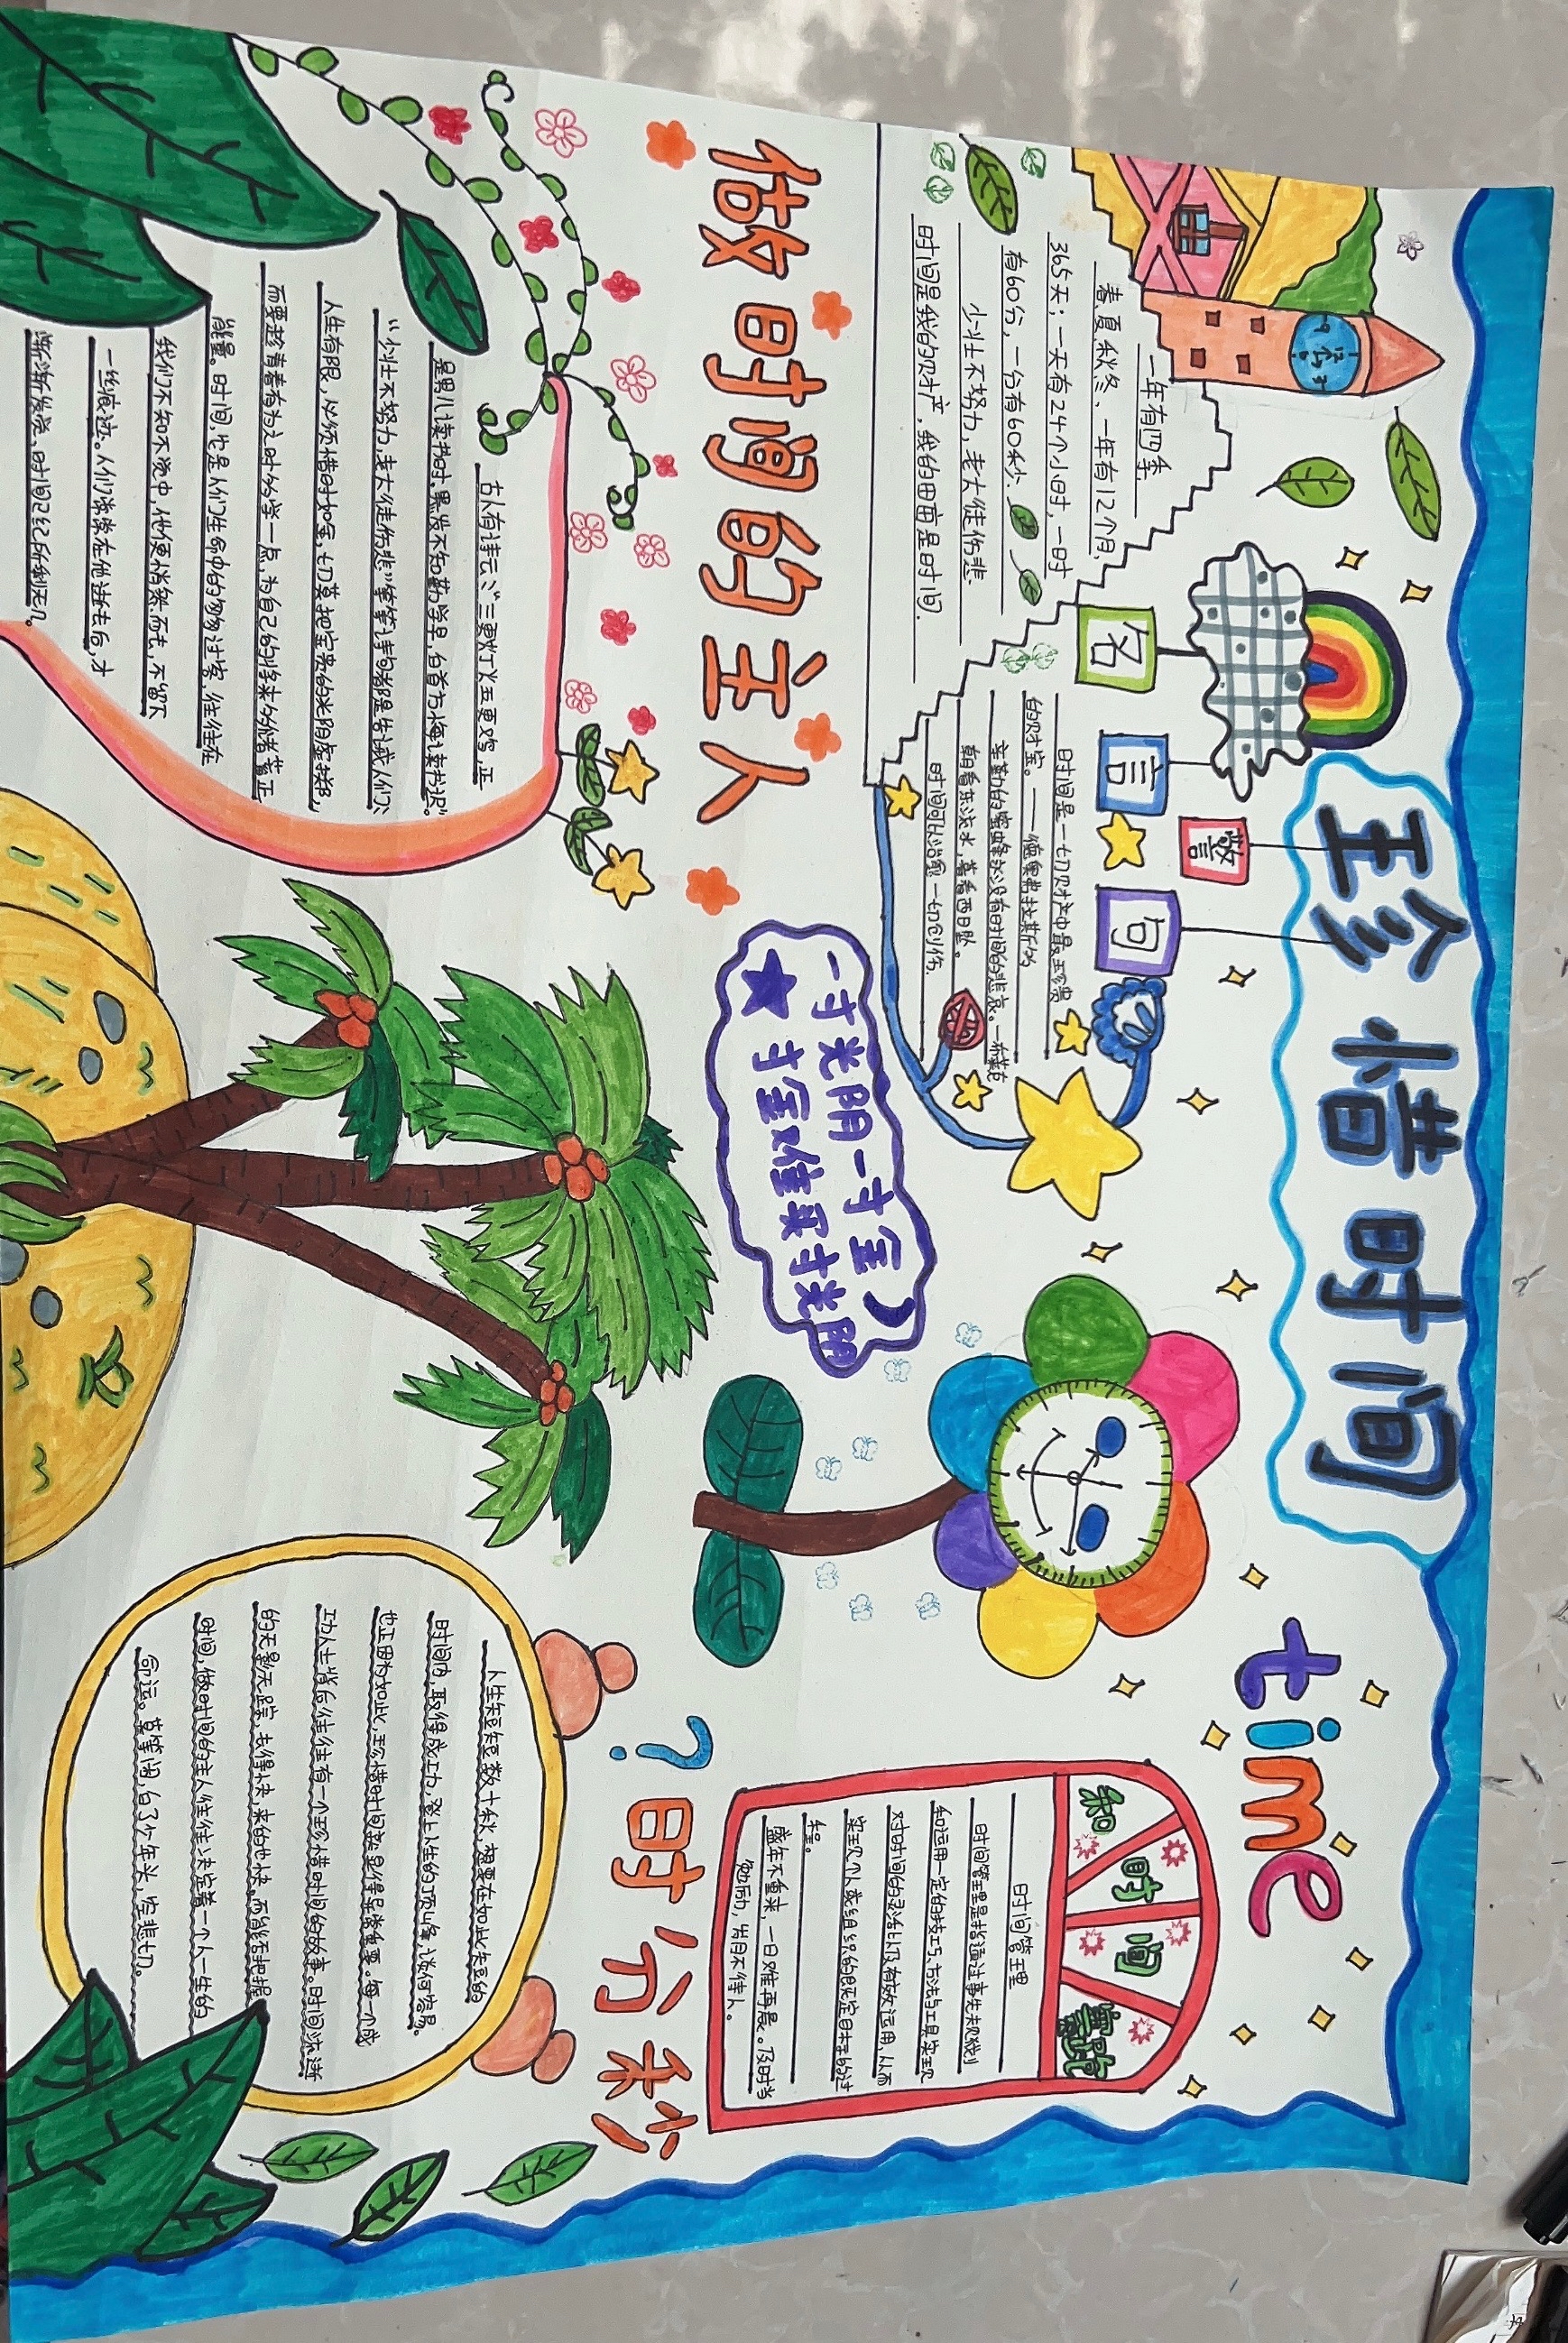 珍惜时间
time
名言警句
一年有四季
春夏秋冬，一年有12个月，
365天；一天有24个小时，一时
有60分，一分有60秒
少壮不努力，老大徒伤悲
时间是我的财产，我的田亩是时间.
时间是一切财产中最珍贵
的财宝。——德奥弗拉斯的
辛勤的蜜蜂永没有时间的悲哀。—布莱克
朝看东流水，暮看西日坠。
时间可以治愈一切创伤.
一寸光阴一寸金
寸金难买寸光阴
知时间
时间管理
时间管理是指通过事先规划
和运用一定的技巧、方法与工具实现
对时间的灵活以及有效运用，从而
实现个人或组织的既定目标的过
程。
盛年不重来，一日难再晨。及时当
勉励，岁月不待人。
做时间的主人
古人有诗云：“三更灯火五更鸡，正
是男儿读书时。黑发不知勤学早，白首方悔读书迟。”
“少壮不努力，老大徒伤悲”等等诗句都是告诫人们：
人生有限，必须惜时如金，切莫把宝贵的光阴虚掷，
而要趁青春有为之时多学一点，为自己的将来多储蓄正
能量。时间，也是人们生命中的匆匆过客，往往在
我们不知不觉中，他便悄然而去，不留下
一丝痕迹。人们常常在他逝去后，才
渐渐发觉，时间已经所剩无几。
?时分秒
人生短短数十秋，想要在如此失短的
时间内，取得成功，登上人生的顶峰，谈何容易。
也正因为如此，珍惜时间就显得异常重要。每一个成
功人士背后往往有一个珍惜时间的故事。时间流逝
的无影无踪，去得快，来的也快。而能否把握
时间，做时间的主人往往决定着一个人一生的
命运。莫等闲，白了少年头，空悲切。